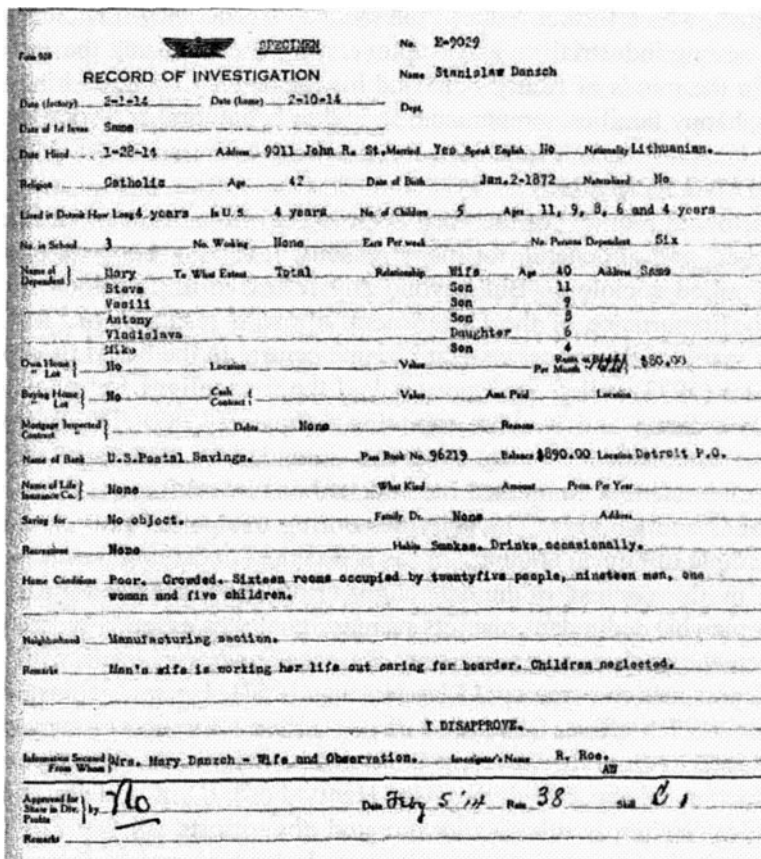 SPECIMEN No. E-9029
RECORD OF INVESTIGATION Name Stanislaw Danzch
Date (factory) 2-1-14 Date (home) 2-10-14 Dept.
Date of 1st Inves Same
Date Hired 1-28-14 Address 9011 John R. St. Married Yes Speak English No Nationality Lithuanian.
Religion Catholic Age 42 Date of Birth Jan. 2-1872 Naturalized No
Lived in Detroit How Long 4 years In U. S. 4 years No. of Children 5 Ages 11, 9, 8, 6 and 4 years
No. in School 3 No. Working None Earn Per week No. Persons Dependent Six
Name of Dependent } Mary To What Extent Total Relationship Wife Age 40 Address Same
Steve Son 11
Vasili Son 9
Antony Son 8
Vladislava Daughter 6
Mike Son 4
Own Home } " Lot No Location Value Per Month $80.00
Buying Home } " Lot No Cash Contract { Value Amt. Paid Location
Mortgage Inspected Contract } Debts None Reasons
Name of Bank U.S.Postal Savings. Pass Book No. 96219 Balance $890.00 Location Detroit P.O.
Name of Life Insurance Co. } None What Kind Amount Prem. Per Year
Saving for No object. Family Dr. None Address
Recreations None Habits Smokes. Drinks occasionally.
Home Conditions Poor. Crowded. Sixteen rooms occupied by twentyfive people, nineteen men, one
woman and five children.
Neighborhood Manufacturing section.
Remarks Man's wife is working her life out caring for boarder. Children neglected.
I DISAPPROVE.
Information Secured From Whom } Mrs. Mary Danzch - Wife and Observation. Investigator's Name R. Roe.
Approved for Share in Div. Profits } by No Date Feby 5 '14 Rate 38 Skill C 1
Remarks